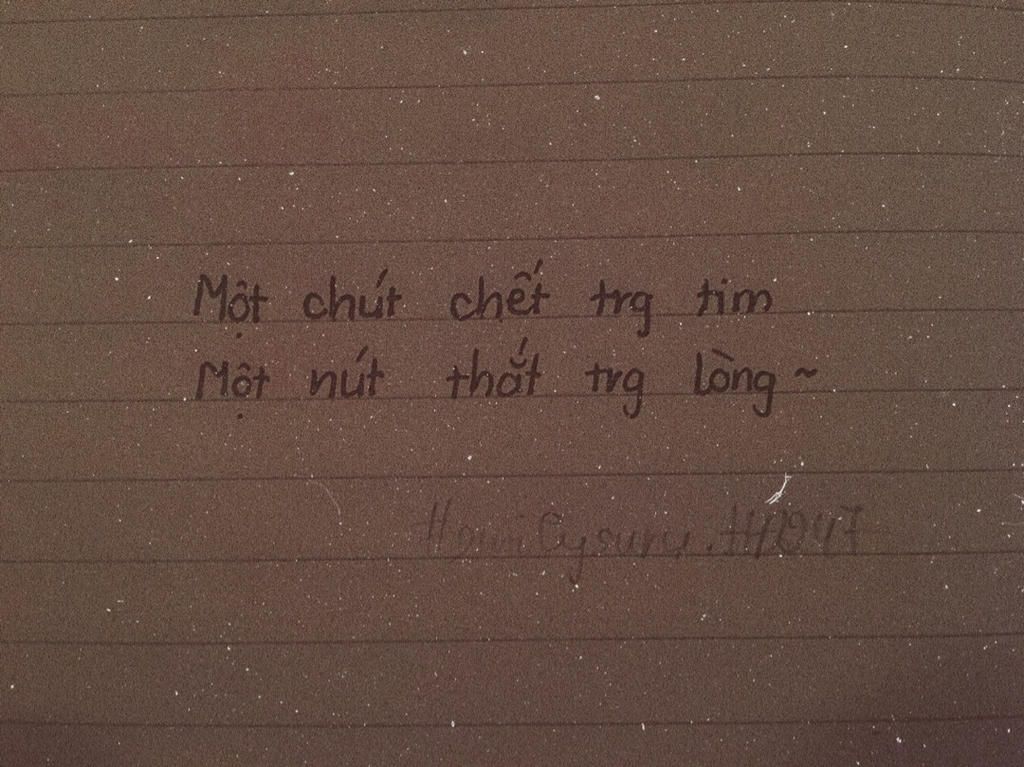 Một chút chết trg tim
Một nút thắt trg lòng ~